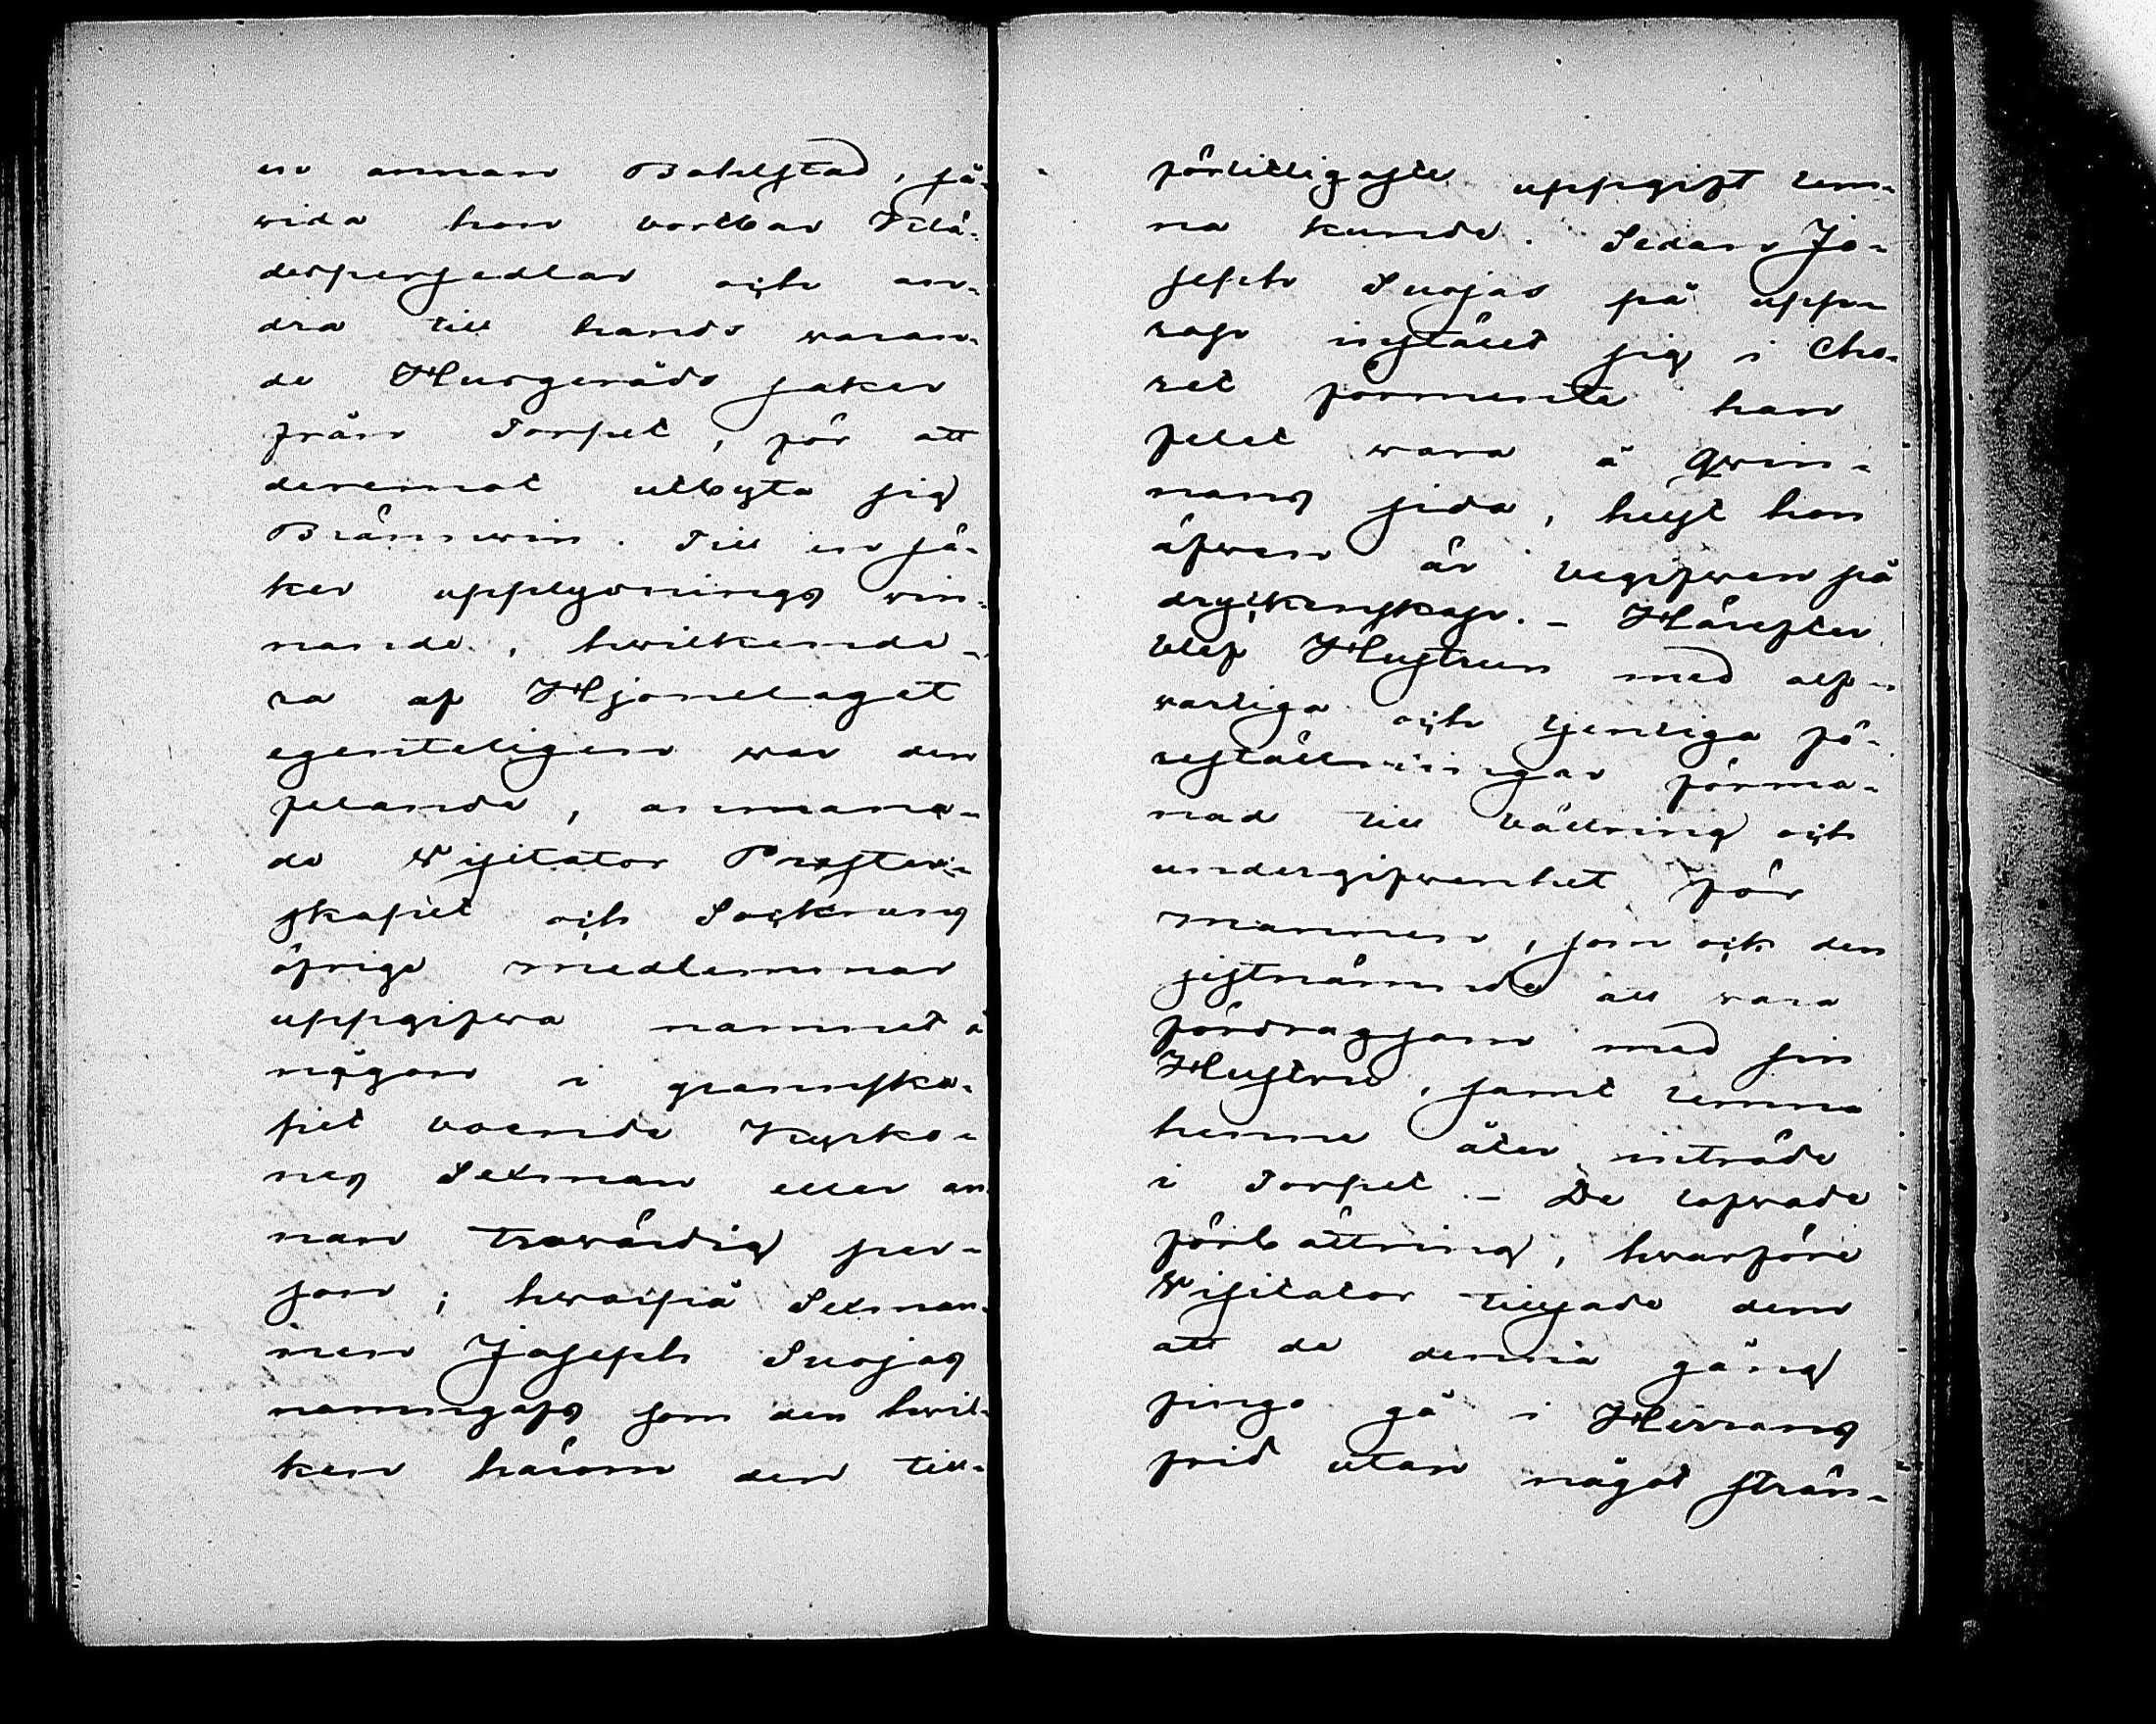 en annan Bohlstad, så-
wida hon bortbar Klä-
despersedlar och an-
dra till hands waran-
de Husgeråds saker
från Torpet, för att
deremot utbyta sig
Brännwin. Till en sä-
ker upplysnings win-
nande, hwilkende-
ra af Hjonelaget
egenteligen war den
felande, anmana-
de Wisitator Prester-
skapet och Socknens
öfrige medlemmar
uppgifwa namnet å
någon i grannska-
pet boende Kyrko-
nes Sexman eller an-
nan trowärdig per-
son; hwarpå Sexman-
nen Joseph Suojas
namngafs som den hwil-
ken härom den till-
förlitligaste uppgift lem-
na kunde. Sedan Jo-
seph Suojas på upp-
rop instält sig i Cho-
ret förmente han
felet wara å Qwin-
nans sida, helst hon
äfwen är begifwen på
dryckenskap. - Härefter
blef Hustrun med alf-
warliga och tjenliga fö-
reställningar förma-
nad till bättring och
undergifwenhet för
mannen, som ock den
sistnämnde att wara
fördragsam med sin
Hustru, samt lemna
henne åter inträde
i Torpet. - De lofwade
förbättring, hwarföre
Wisitator tillsade dem
att de denna gång
finge gå i Herrans
frid utan något strän-